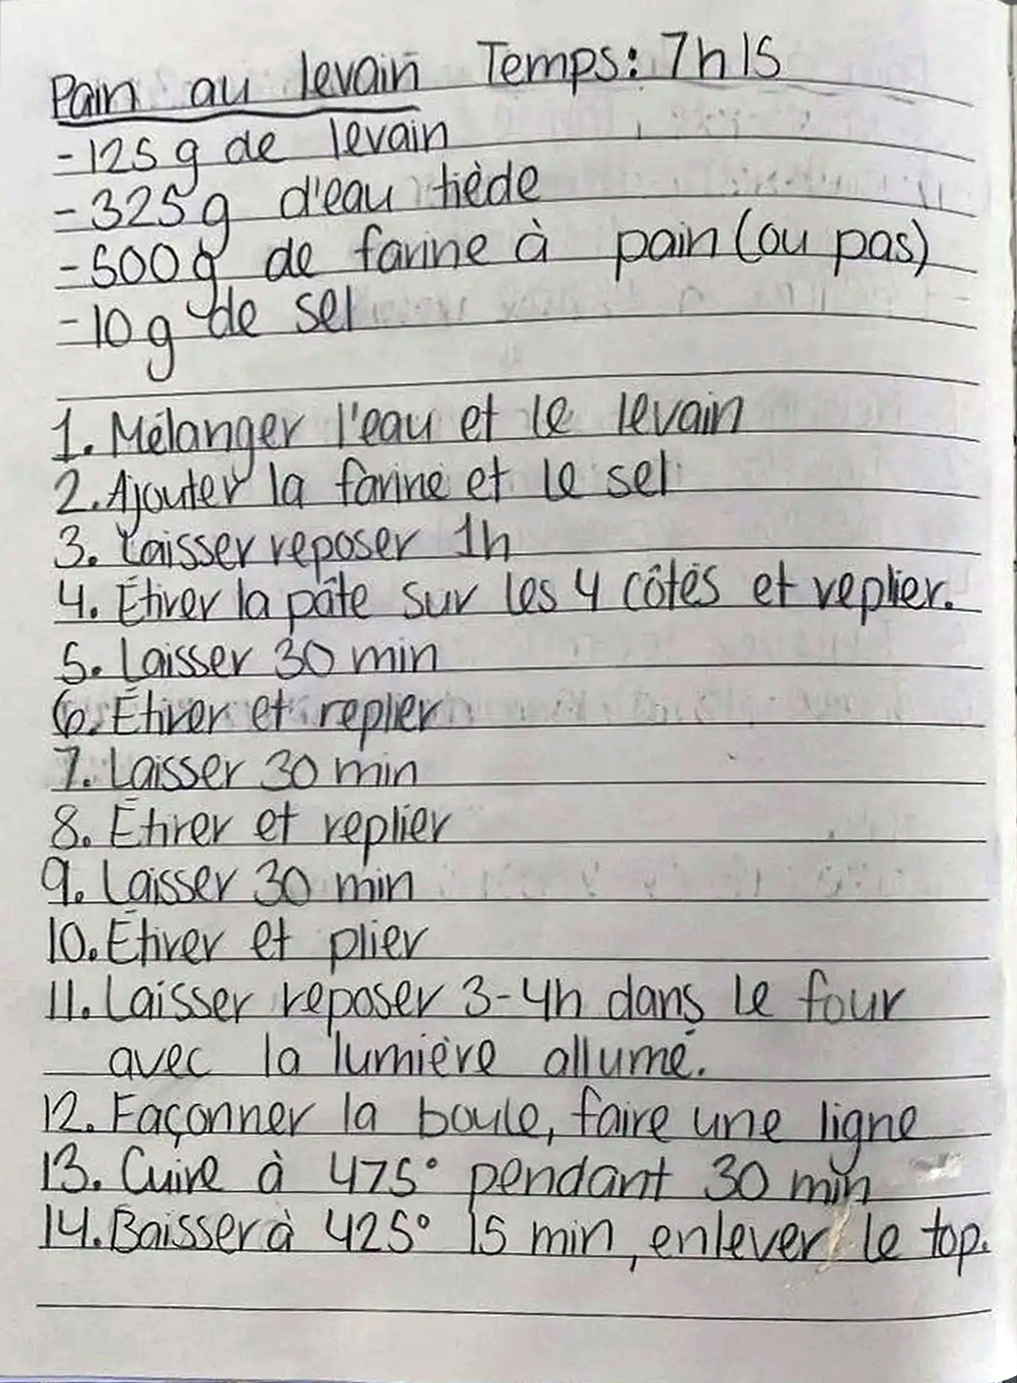 Pain au levain Temps: 7h15
- 125 g de levain
- 325 g d'eau tiède
- 500 g de farine à pain (ou pas)
- 10 g de sel
1. Mélanger l'eau et le levain
2. Ajouter la farine et le sel
3. Laisser reposer 1h
4. Étirer la pâte sur les 4 côtés et replier.
5. Laisser 30 min
6. Étirer et replier
7. Laisser 30 min
8. Étirer et replier
9. Laisser 30 min
10. Étirer et plier
11. Laisser reposer 3-4h dans le four
avec la lumière allumé.
12. Façonner la boule, faire une ligne
13. Cuire à 475° pendant 30 min
14. Baisser à 425° 15 min, enlever le top.